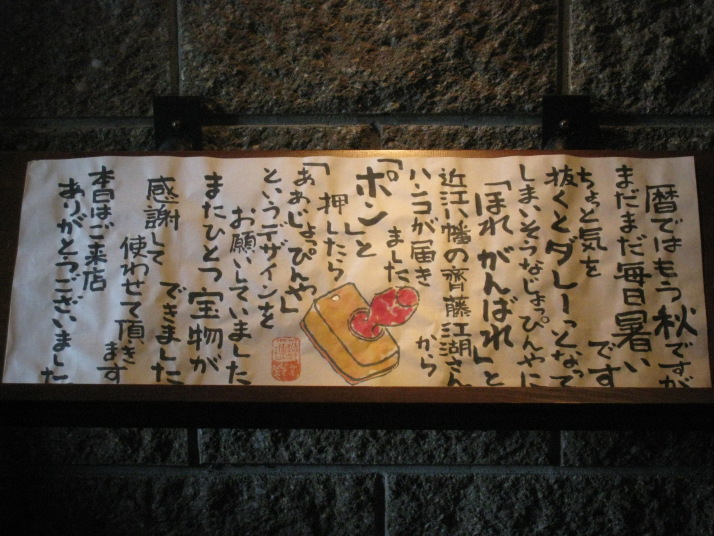 暦ではもう秋ですが
まだまだ毎日暑い
です
ちょと気を
抜くとダレーっとなって
しまいそうなじょっぴんやに
「ほれがんばれ」と
近江八幡の齊藤江湖さん
から
ハンコが届き
ました
「ポン」と
押したら
「ああじょっぴんや」
というデザインを
お願いしていました
またひとつ宝物が
できました
感謝して
使わせて頂きます
本日はご来店
ありがとうございました